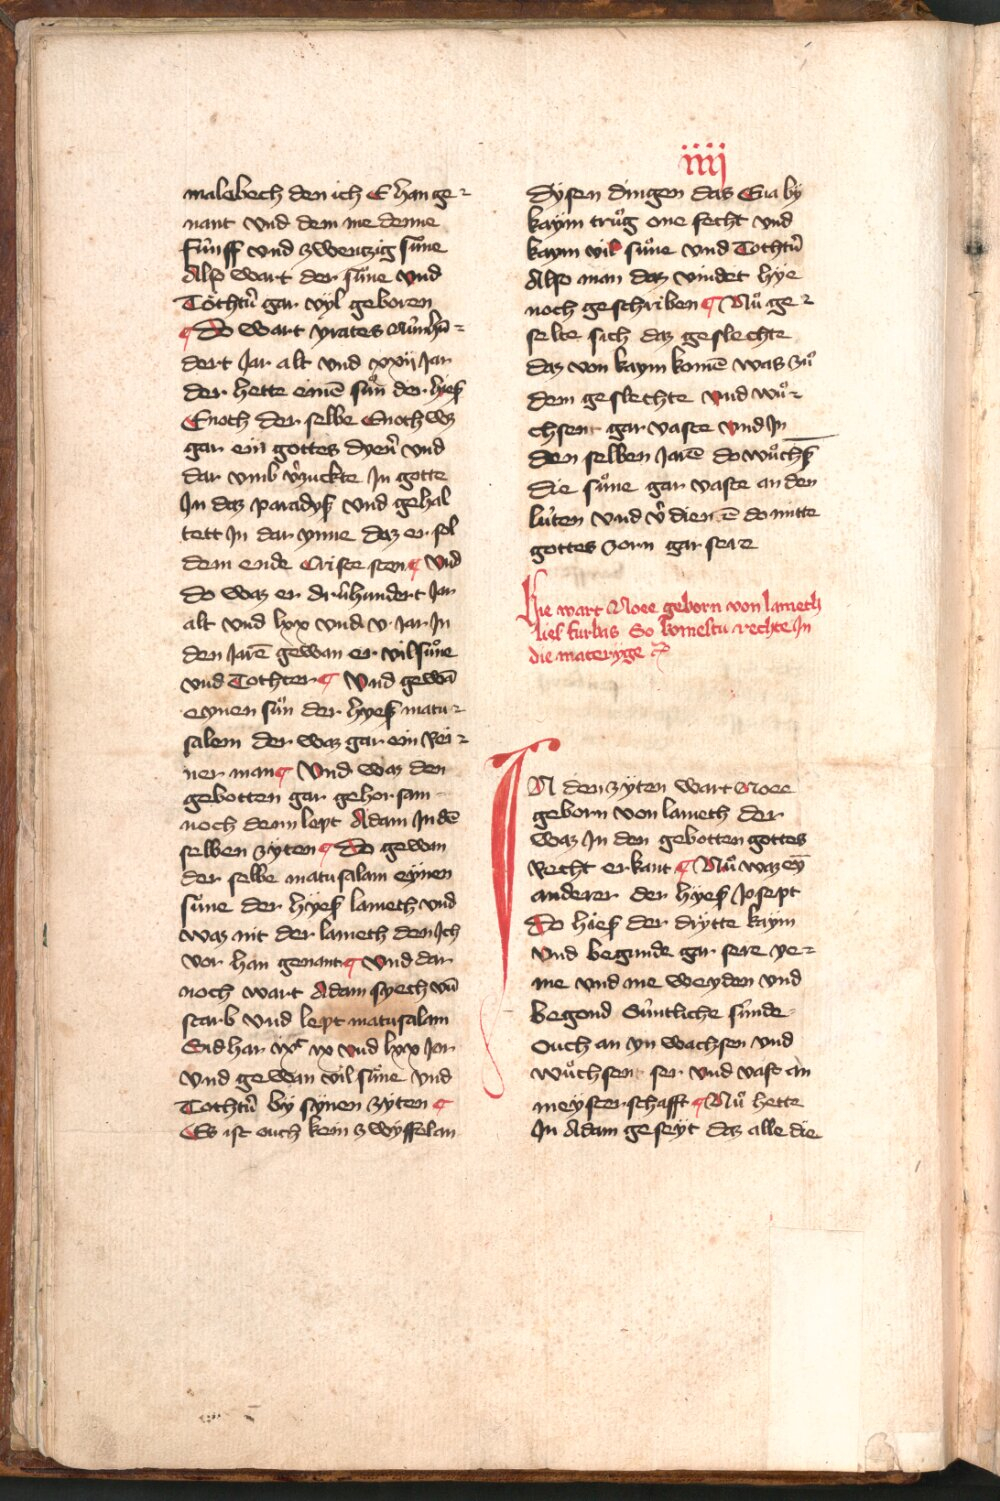 iiij
malebech den ich E han ge⸗
nant vnd dem me denne
Fúnff vnd zwenzig súne
Also wart der súne vnd
Tochtr̄ gar vyl geboren
¶ Do wart yrates
dert Jar alt vnd xxij Jar
der hette einē sůn der hieß
Enoch der selbe Enoch wz
gar ein gottes dyenr̄ vnd
dar vmb vˀzuckte Jn gotte
Jn daz paradyß vnd gehal
tett Jn dar ynne daz er sol
dem ende Criste sten ¶ Vnd
do waz er drúhundert Jar
alt vnd lxx vnd v Jar Jn
den Jarē gewan er vil sůne
vnd Tochter ¶ Vnd gewā
eynen sůn der hyeß matu⸗
salem der waz gar ein Rei⸗
ner man ¶ Vnd waz den
gebotten gar gehorsam
noch denn lept Adam Jn dē
selben zyten ¶ Do gewan
der selbe matusalam eynen
sůne der hÿeß lameth vnd
waz nit der lameth den Jch
vor han genant ¶ Vnd dar
noch wart Adam syech vn̄
starb vnd lept matusalam
Sid har ixᶜ ix vnd lxx Jor
vnd gewan vil sůne vnd
Tochtr̄ bÿ sÿnen zyten ¶
Es ist ouch kein zwÿffel an
dÿsen dingen das Eua bÿ
kaÿm trůg one fecht vnd
kaym vil sůne vnd Tochtr̄
Also man daz vindet hÿe
noch geschriben ¶ Nů ge⸗
selte sich daz geslechte
daz von kaym komē waz zů
dem geslechte vnd wů⸗
chsent gar vaste vnd Jn
den selben Jarē do wůchß
die sůne gar vaste an den
lúten vnd vˀdienē do mitte
gottes zorn gar sere
Hie wart Noee geborn von lameth
liß furbas So komestu rechte Jn
die materÿge
JN den zÿten wart Noee
geborn von lameth der
waz Jn den gebotten gottes
Recht erkant ¶ Nů waz eÿ
anderer der hÿeß Josept
Do hieß der drÿtte kaÿm
vnd begunde gar sere ye⸗
me vnd me weyden vnd
begond súntliche súnde
Ouch an yn wachsen vnd
wůchsen ser vnd vast an
meÿsterschafft ¶ Nů hette
Jn Adam geseÿt daz alle die